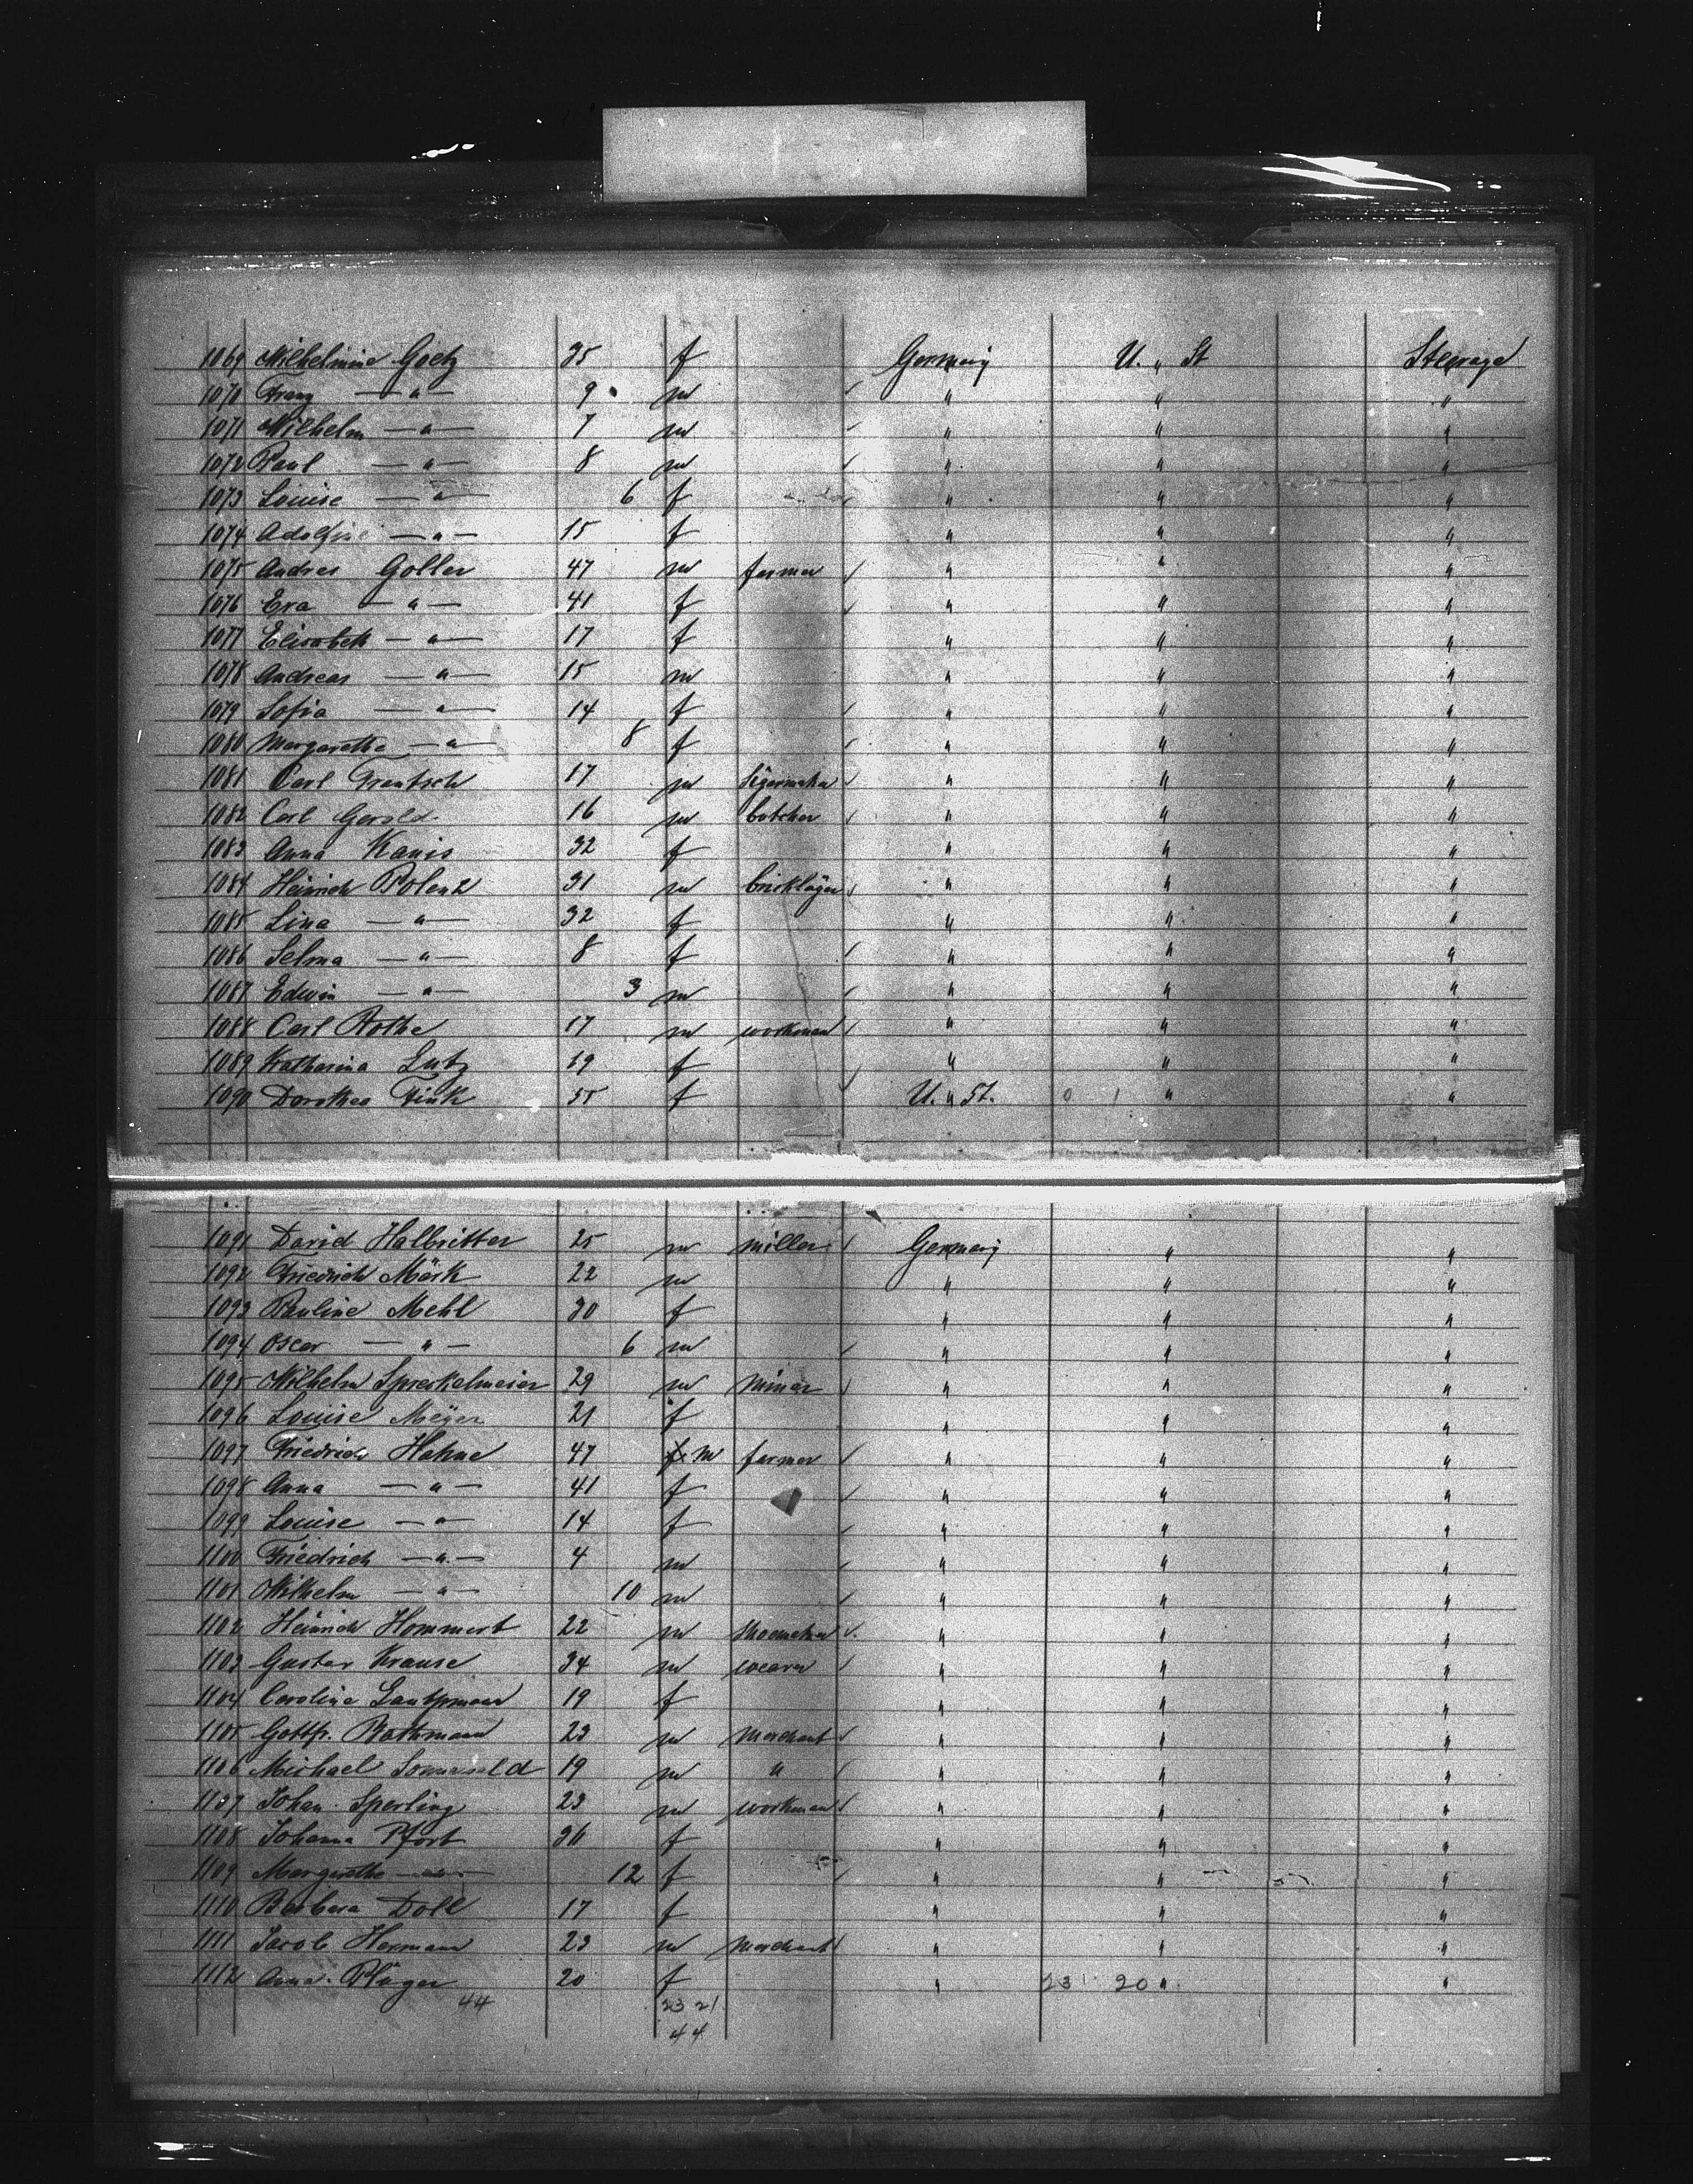 1069 Wilhelmine Goetz 35 f Germany U. " St Steerage
1070 Franz — " — 9 m " " "
1071 Wilhelm — " — 7 m " " "
1072 Paul — " — 8 m " " "
1073 Louise — " — 6 f " " "
1074 — " — 15 f " " "
1075 Andres Goller 47 m farmer " " "
1076 Eva — " — 41 f " " "
1077 Elisabeth — " — 17 f " " "
1078 Andreas — " — 15 m " " "
1079 Sofia — " — 14 f " " "
1080 Margarethe — " — 8 f " " "
1081 Carl 17 m " " "
1082 Carl Gerold 16 m butcher " " "
1083 Anna Kanis 32 f " " "
1084 Heinrich Polenz 31 m bricklayer " " "
1085 Lina — " — 32 f " " "
1086 Selma — " — 8 f " " "
1087 Edwin — " — 3 m " " "
1088 Carl Rothe 17 m workman " " "
1089 Katharina Lutz 19 f " " "
1090 Dorothea Fink 55 f U. " St. 0 1 " "
1091 David Halbritter 25 m miller Germany " "
1092 Friedrich Mörk 22 m " " "
1093 Pauline Mehl 30 f " " "
1094 Oscar — " — 6 m " " "
1095 Wilhelm Spreckelmeier 29 m miner " " "
1096 Louise Meyer 21 f " " "
1097 Friedrich Hahne 47 m farmer " " "
1098 Anna — " — 41 f " " "
1099 Louise — " — 14 f " " "
1100 Friedrich — " — 4 m " " "
1101 Wilhelm — " — 10 m " " "
1102 Heinrich Hommert 22 m shoemaker " " "
1103 Gustav Krause 34 m " " "
1104 Caroline 19 f " " "
1105 Gottfr. Rathmann 23 m merchant " " "
1106 Michael 19 m " " " "
1107 Johan Sperling 23 m workman " " "
1108 Johanna Pfort 36 f " " "
1109 Margarethe — " — 12 f " " "
1110 Barbara Doll 17 f " " "
1111 Jacob Hermann 23 m merchant " " "
1112 Anna Plüger 20 f " 23 20 " "
44 23 21
44